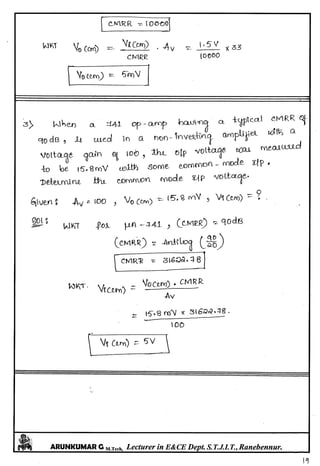 CMRR = 10000
WKT Vo(cm) = Vi(cm) / CMRR · Av = 1.5V / 10000 × 33
Vo(cm) = 5mV
3) When a 741 op-amp having a typical CMRR of
90dB, is used in a non-Inverting amplifier with a
voltage gain of 100, The o/p voltage was measured
to be 15.8mV with some common-mode I/p.
Determine the common mode I/p voltage.
Given: Av = 100, Vo(cm) = 15.8 mV, Vi(cm) = ?
Sol: WKT for µA-741, (CMRR) = 90dB
(CMRR) = Antilog (90/20)
CMRR = 31622.78
WKT. Vi(cm) = Vo(cm) . CMRR / Av
= 15.8mV × 31622.78 / 100
Vi(cm) = 5V
ARUNKUMAR G M.Tech, Lecturer in E&CE Dept. S.T.J.I.T., Ranebennur.
19